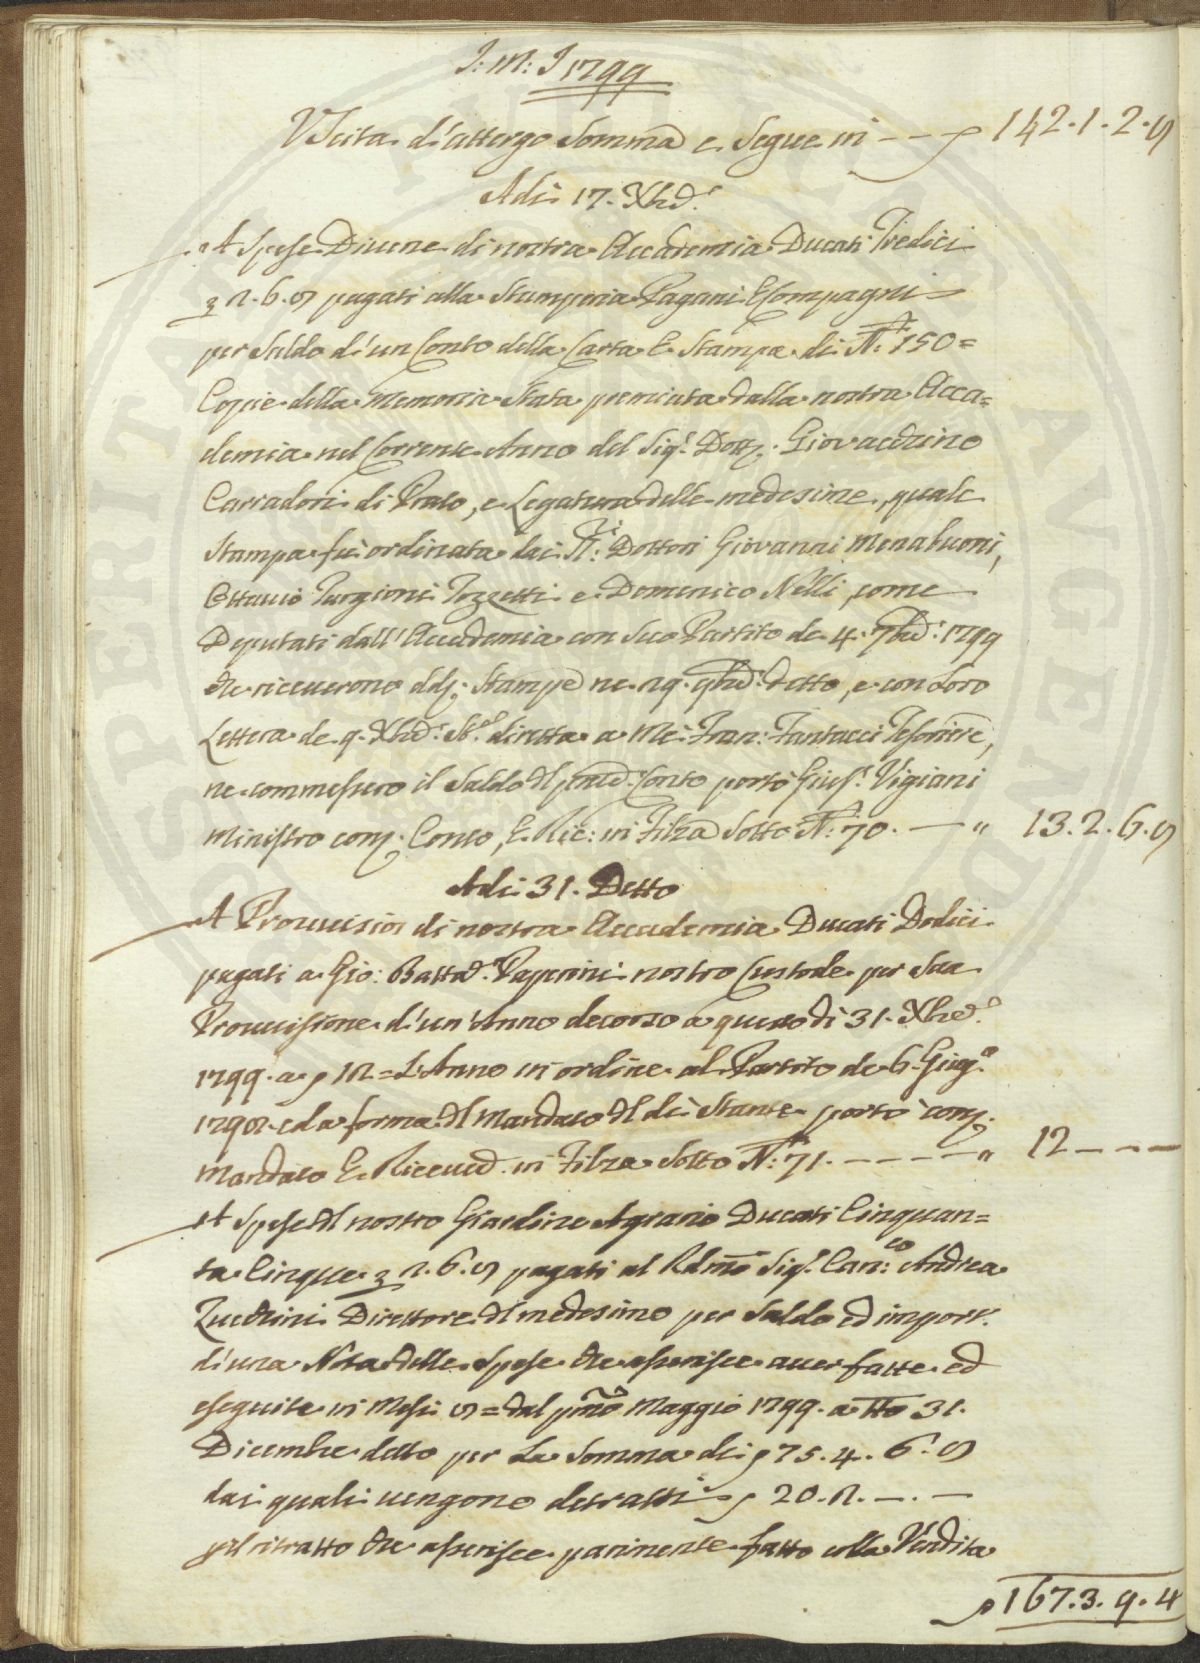 J: M: J 1799
Uscita d'attergo Somma e Segue in --- 142.1.2.8
Adi 17. Xbre.
A Spese Diverse di nostra Accademia Ducati Tredici
2.6.8 pagati alla Stamperia Pagani E Compagni
per Saldo d'un Conto della Carta E Stampa di N: 150=
Copie della Memoria Stata premiata dalla nostra Acca=
demia nel Corrente Anno del Sig.r Dott.: Giovacchino
Carradori di Prato, e Legatura delle medesime, quale
Stampa fù ordinata dai SS.ri: Dottori Giovanni Menabuoni,
Ottavio Targioni Tozzetti e Domenico Nelli come
Deputati dall'Accademia con Suo Partito de 4. 7bre: 1799
che riceverono dd: Stampe ne 29. 9bre. detto, e con Loro
Lettera de 9. Xbre. St.e diretta a Me Fran: Fantucci Tesoriere,
ne commessero il Saldo dl Conto portò Gius.e Vigiani
Ministro com: Conto, E Ric: in Filza Sotto N: 70. — " 13.2.6.8
Adi 31. Detto
A Provvision di nostra Accademia Ducati Dodici
pagati a Gio: Batta. Paperini nostro Custode per Sua
Provvisione d'un'Anno decorso a questo dì 31. Xbre.
1799. a 12= L'Anno in ordine al Partito de 6. Giug.o
1792. ed a forma dl Mandato dl dì Stante portò com:
Mandato E Ricevd. in Filza Sotto N: 71. ----- " 12 - - -
A Spese dl nostro Giardino Agrario Ducati Cinquan=
ta Cinque 2.6.8 pagati al Rdmo Sig.r Can:co Andrea
Zucchini Direttore dl medesimo per Saldo ed import.
d'una Nota delle Spese che asserisce aver fatte ed
eseguite in Mesi 8= dal pmo Maggio 1799. a tto 31.
Dicembre detto per La Somma di 75.4.6.8
dai quali vengono detratti 20.2.—.—
pl ritratto che asserisce parimente fatto colla Vendita
167.3.9.4